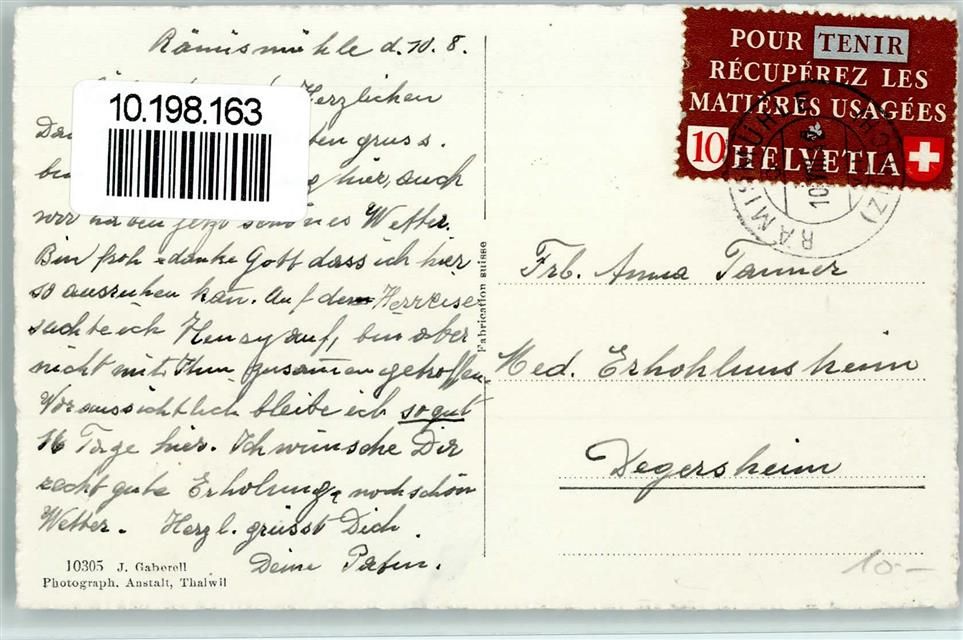 Rämismühle d. 10. 8.
Herzlichen
ten gruss.
hier, auch
wir haben jetzt schönes Wetter.
Bin froh + danke Gott dass ich hier
so ausruhen kan. Auf der Herreise
suchte ich Henry auf, bin aber
nicht mit Ihm zusammengetroffen.
Voraussichtlich bleibe ich so gut
16 Tage hier. Ich wünsche Dir
recht gute Erholung, noch schön
Wetter. Herzl. grüsst Dich
Deine Patin.
10305 J. Gaberell
Photograph. Anstalt, Thalwil
10.198.163
Fabrication suisse
POUR TENIR
RÉCUPÉREZ LES
MATIÈRES USAGÉES
10 HELVETIA
RÄMISMÜHLE
(ZÜRICH)
Frl. Anna Tanner
Med. Erhohlunsheim
Degersheim
10.-